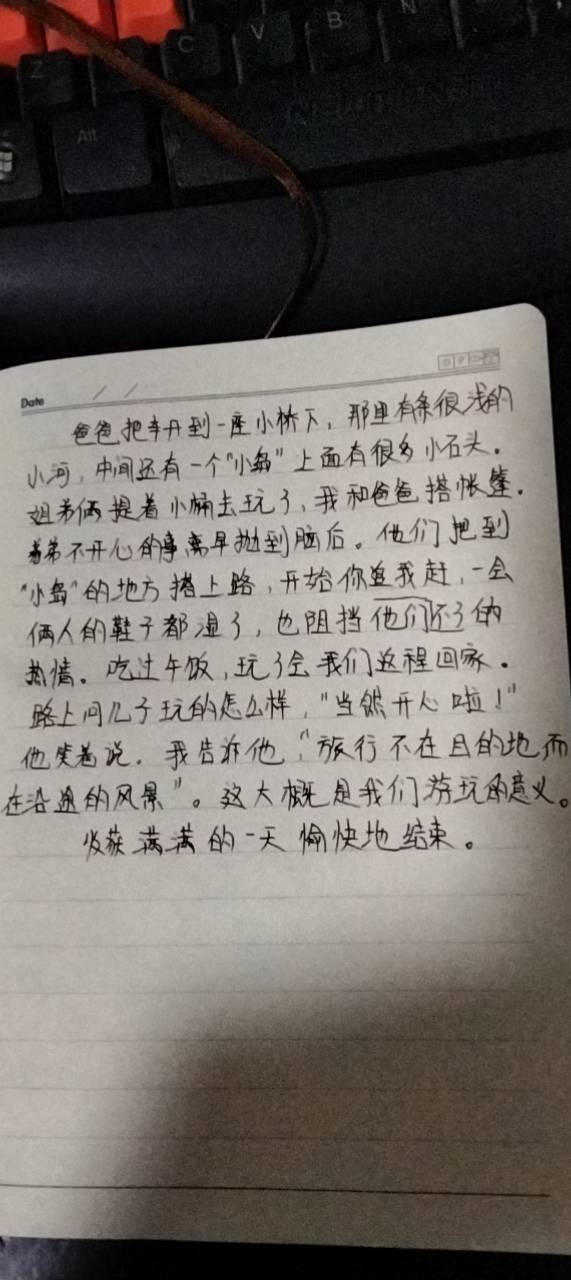 Z
C
V
B
N
Alt
Date / /
爸爸把车开到一座小桥下，那里有条很浅的
小河，中间还有一个“小岛”上面有很多小石头。
姐弟俩提着小桶去玩了，我和爸爸搭帐篷。
弟弟不开心的事离早抛到脑后。他们把到
“小岛”的地方搭上路，开始你追我赶，一会
俩人的鞋子都湿了，也阻挡他们不了的
热情。吃过午饭，玩了会我们返程回家。
路上问儿子玩的怎么样，“当然开心啦！”
他笑着说。我告诉他，“旅行不在目的地而
在沿途的风景”。这大概是我们游玩的意义。
收获满满的一天愉快地结束。